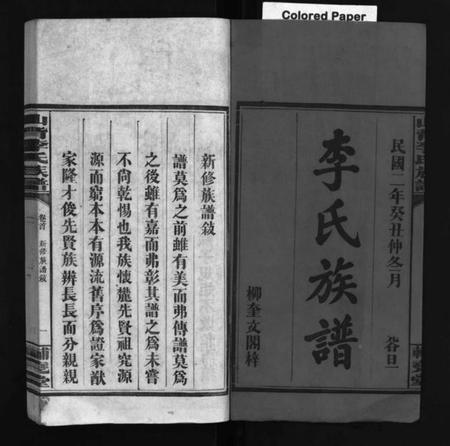 Colored Paper
民國二年癸丑仲冬月
穀旦
李氏族譜
柳奎文閣梓
新修族譜敘
譜莫為之前雖有美而弗傳譜莫為
之後雖有嘉而弗彰其譜之為未嘗
不尚乾惕也我族懷
先賢祖究源
源而窮本本有源流舊序為證家猷
家隆才俊先賢族辨長長而分親親
李氏族譜
卷首
新修族譜敘
一